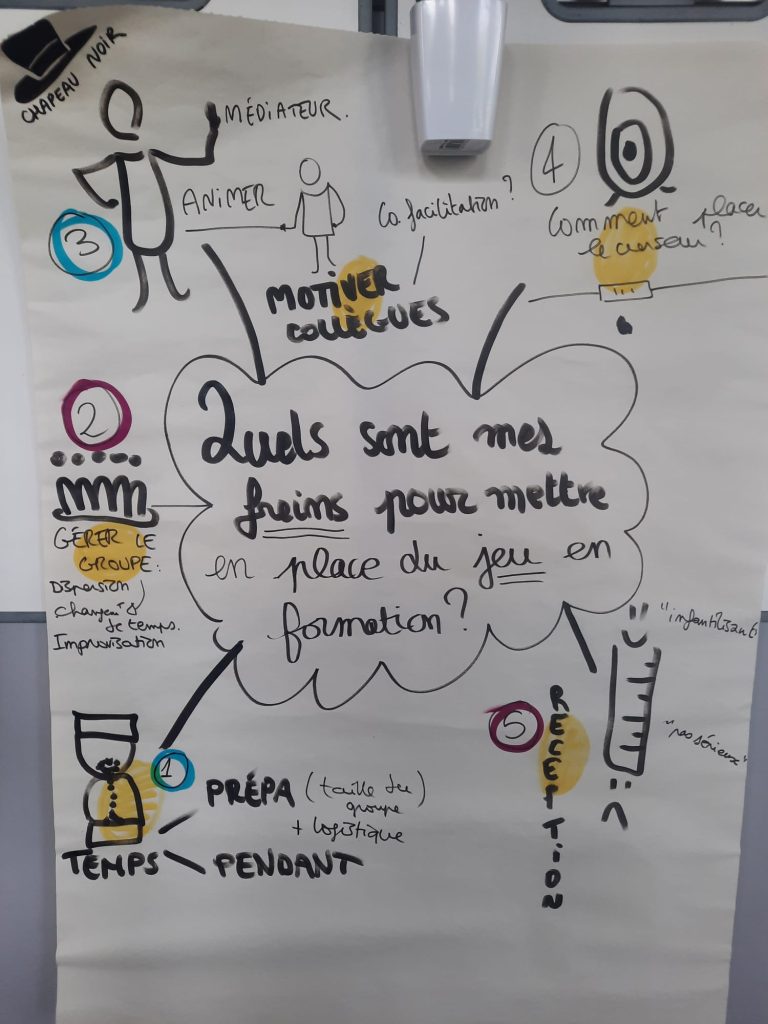 CHAPEAU NOIR
Quels sont mes
freins pour mettre
en place du jeu en
formation?
1
TEMPS
PRÉPA (taille du
groupe
+ logistique
PENDANT
2
GÉRER LE
GROUPE:
Dispersion
changemt
de temps.
Improvisation
3
MÉDIATEUR.
ANIMER
MOTIVER
COLLÈGUES
Co.facilitation?
4
Comment placer
le curseur?
5
RECEPTION
"infantilisant"
"pas sérieux"